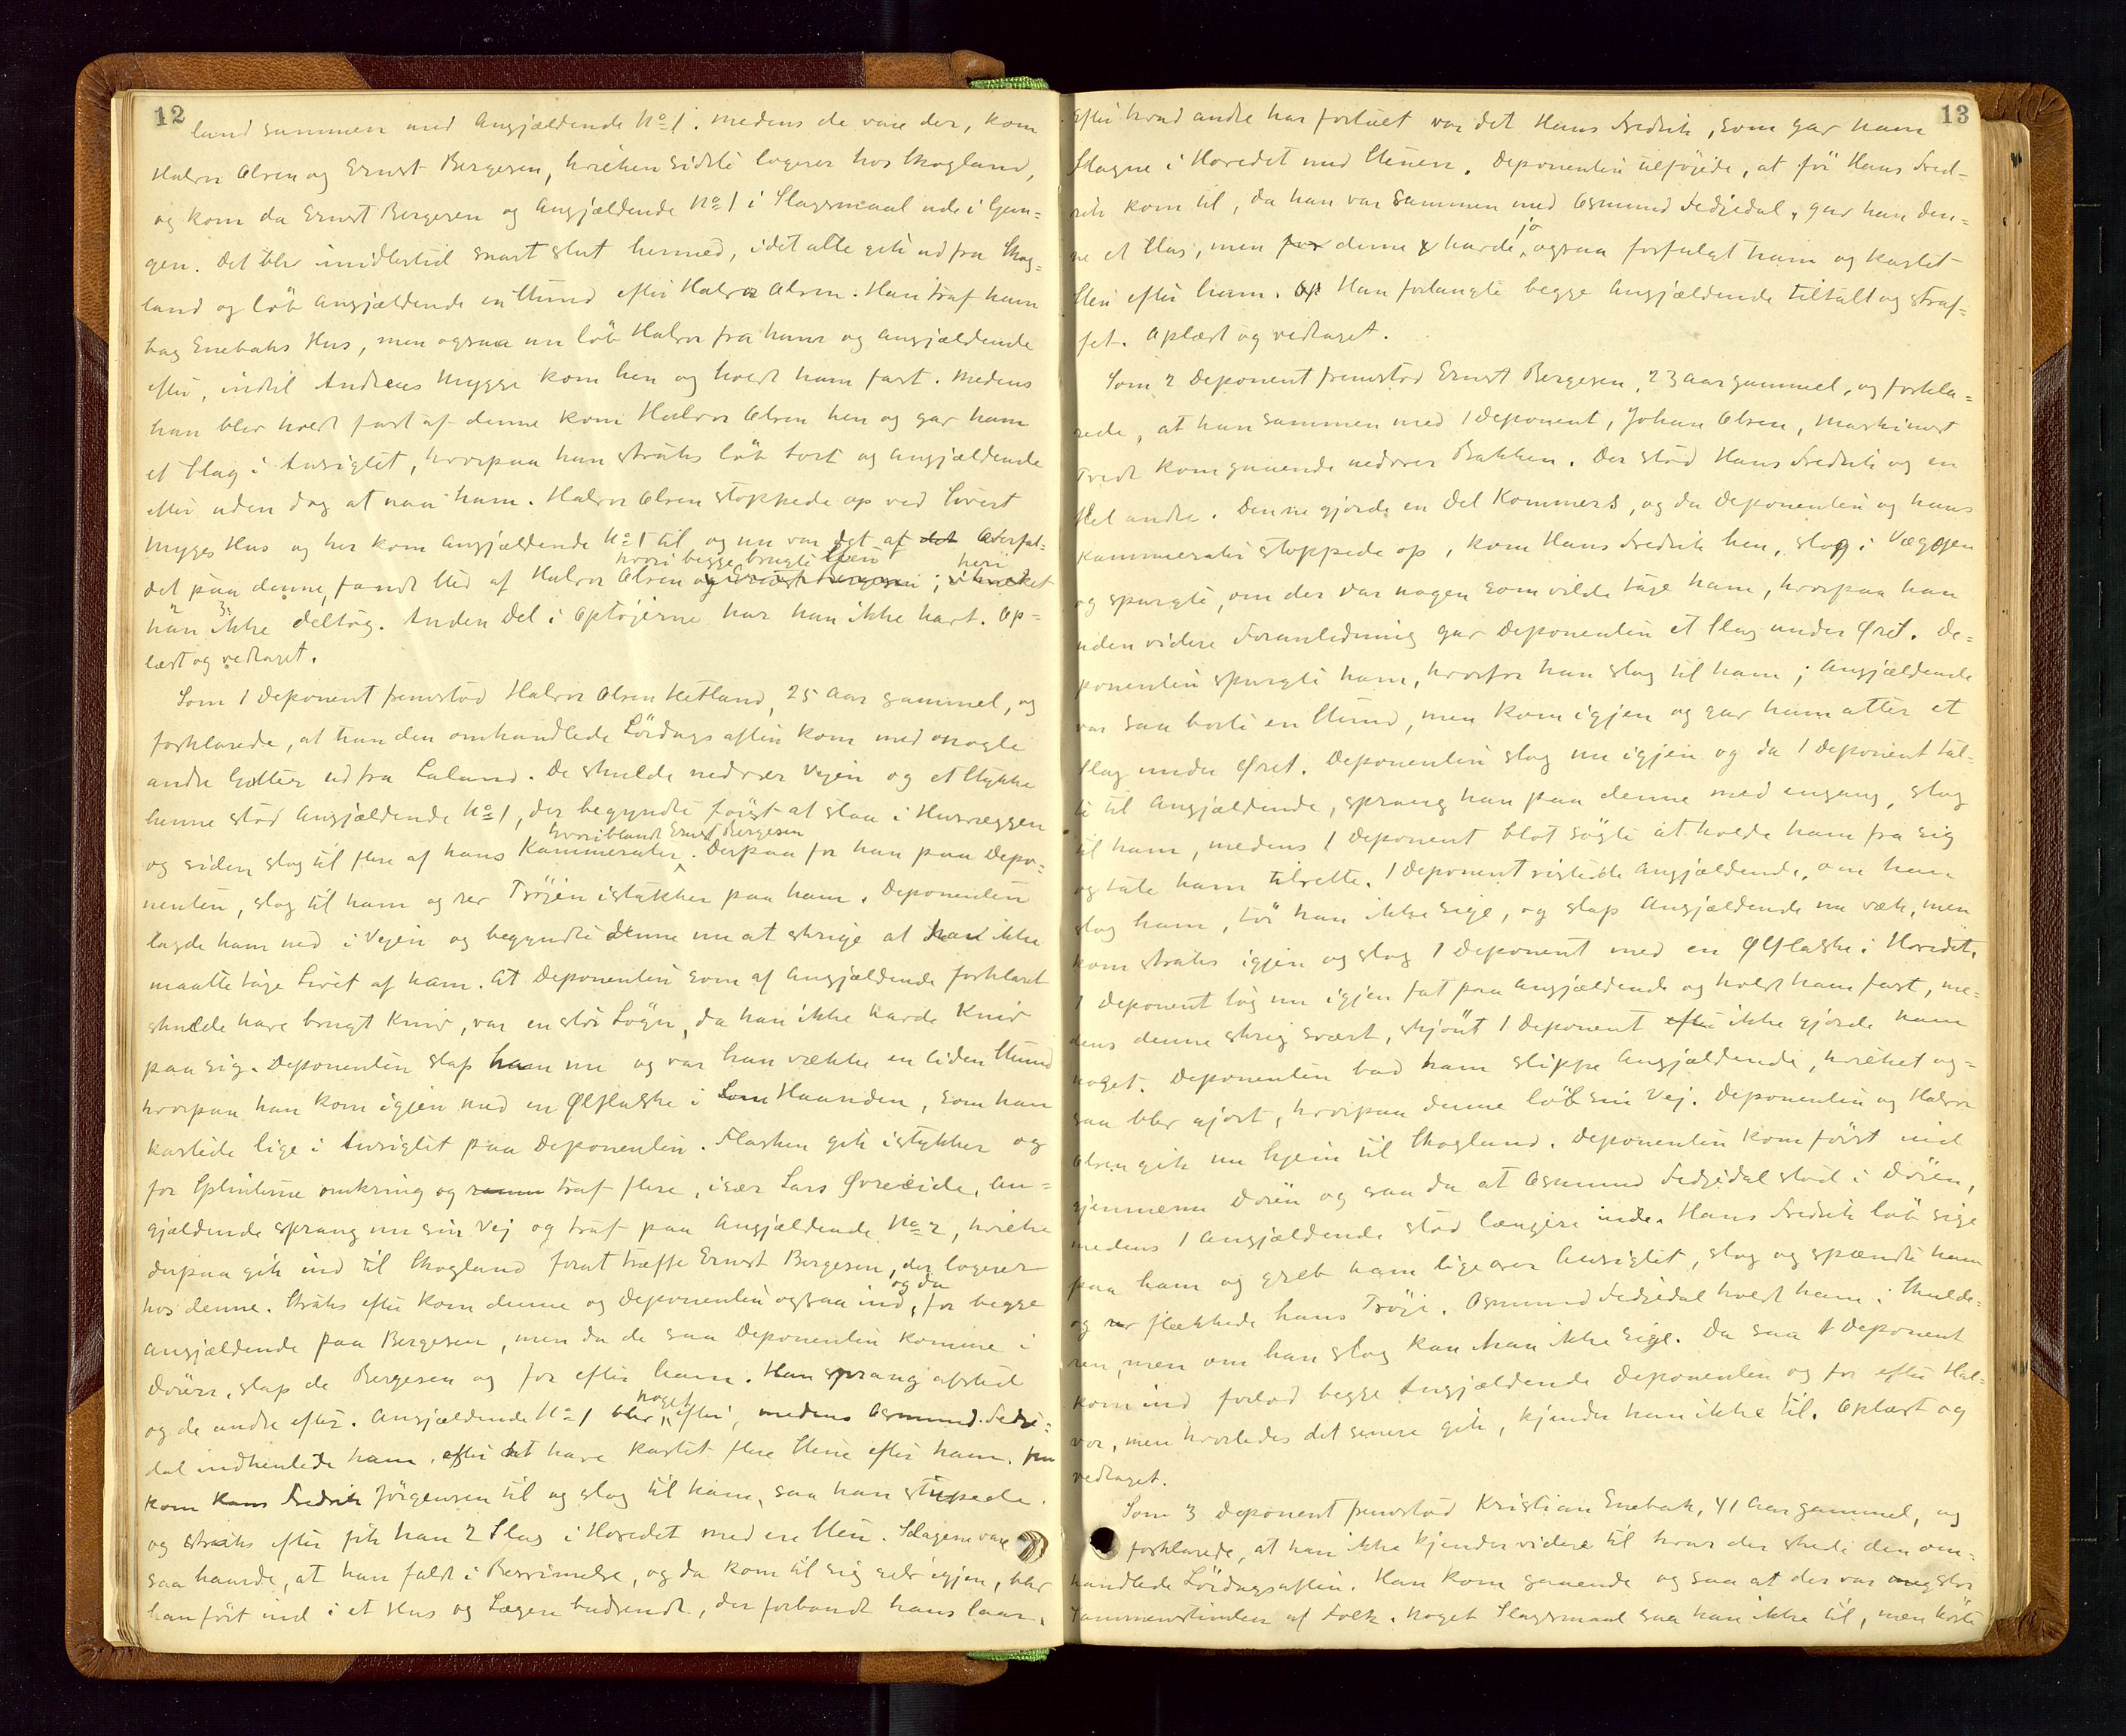 12
land sammen med Angjældende No 1. Medens de vare der, kom
Halvor Olsen og Ernst Bergesen, hvilken sidste logerer hos Skogland,
og kom da Ernst Bergesen og Angjældende No 1 i Slagsmaal ude i Gan-
gen. Det blev imidlertid snart slut hermed, idet alle gik ud fra Skog-
land og løb Angjældende en Stund efter Halvor Olsen. Han traf ham
bag Enebaks Hus, men ogsaa nu løb Halvor fra ham og Angjældende
efter, indtil Andreas Mygge kom hen og holdt ham fast. Medens
han blev holdt fast af denne kom Halvor Olsen hen og gav ham
et Slag i Ansigtet, hvorpaa han straks løb bort og Angjældende
efter uden dog at naa ham. Halvor Olsen stoppede op ved Sivert
Mygges Hus og her kom Angjældende No 1 til og nu var det at det Overfal-
hvori begge brugte Sten heri
det paa denne, fandt Sted af Halvor Olsen og Ernst Bergesen; i hvilket
han ikke deltog. Anden Del i Optøjerne har han ikke havt. Op-
læst og vedtaget.
Som 1 Deponent fremstod Halvor Olsen Ketland, 25 Aar gammel, og
forklarede, at han den omhandlede Lördags aften kom med nogle
andre Gutter ud fra Laland. De skulde nedover Vejen og et Stykke
henne stod Angjældende No 1, der begyndte först at slaa i Husvæggen
hvoriblandt Ernst Bergesen
og siden slog til flere af hans Kammerater. Derpaa for han paa Depo-
nenten, slog til ham og rev Trøjen istykker paa ham. Deponenten
lagde ham ned i Vejen og begyndte denne nu at skrige at han ikke
maatte tage Livet af ham. At Deponenten som af Angjældende forklaret
skulde have brugt Kniv, var en stor Løgn, da han ikke havde Kniv
paa sig. Deponenten slap ham nu og var han vække en liden Stund
hvorpaa han kom igjen med en Ølflaske i Haanden, som han
kastede lige i Ansigtet paa Deponenten. Flasken gik istykker og
for Splinterne omkring og traf flere, især Lars Øvreeide. An-
gjældende sprang nu sin Vej og traf paa Angjældende No 2, hvilke
derpaa gik ind til Skogland forat træffe Ernst Bergesen, der logerer
og da
hos denne. Straks efter kom denne og Deponenten ogsaa ind, for begge
Angjældende paa Bergesen, men da de saa Deponenten komme i
Døren, slap de Bergesen og for efter ham. Han sprang afsted
noget
og de andre efter. Angjældende No 1 blev efter, medens Asmund Fedje-
dal indhentede ham, efter at have kastet flere Stene efter ham.
kom Hans Fredrik Jørgensen til og slog til ham, saa han stupede.
og straks efter fik han 2 Slag i Hovedet med en Sten. Slagene vare
saa haarde, at han faldt i Besvimelse, og da kom til sig selv igjen, blev
han ført ind i et Hus og Lægen budsendt, der forbandt hans Saar.
13
Efter hvad andre har fortalt var det Hans Fredrik, som gav ham
Slagne i Hovedet med Stenen. Deponenten tilföjede, at för Hans Fred-
rik kom til, da han var sammen med Asmund Fedjedal, gav han den-
jo
ne et Slag, men denne havde ogsaa forfulgt ham og kastet
Sten efter ham. Han forlangte begge Angjældende tiltalt og straf-
fet. Oplæst og vedtaget.
Som 2 Deponent fremstod Ernst Bergesen, 23 Aar gammel, og forkla-
rede, at han sammen med 1 Deponent, Johan Olsen, Maskinist
Tvedt kom gaaende nedover Bakken. Der stod Hans Fredrik og en
Del andre. Denne gjorde en Del Kommers, og da Deponenten og hans
Kammerater stoppede op, kom Hans Fredrik hen, slog i Væggen
og spurgte, om der var nogen som vilde tage ham, hvorpaa han
uden videre Foranledning gav Deponenten et Slag under Øret. De-
ponenten spurgte ham, hvorfor han slog til ham; Angjældende
var saa borte en Stund, men kom igjen og gav ham atter et
Slag under Øret. Deponenten slog nu igjen og da 1 Deponent tal-
te til Angjældende, sprang han paa denne med engang, slog
til ham, medens 1 Deponent blot søgte at holde ham fra sig
og tale ham tilrette. 1 Deponent ristede Angjældende, om han
slog ham, tör han ikke sige, og slap Angjældende nu væk, men
kom straks igjen og slog 1 Deponent med en Ølflaske i Hovedet.
1 Deponent tog nu igjen fat paa Angjældende og holdt ham fast, me-
dens denne skreg svært, skjönt 1 Deponent ikke gjorde ham
noget. Deponenten bad ham slippe Angjældende, hvilket og-
saa blev gjort, hvorpaa denne löb sin Vej. Deponenten og Halvor
Olsen gik nu hjem til Skogland. Deponenten kom först ind
gjennem Døren og saa da at Asmund Fedjedal stod i Døren,
medens 1 Angjældende stod længere inde. Hans Fredrik löb lige
paa ham og greb ham lige over Ansigtet, slog og spændte ham
og flækkede hans Trøje. Asmund Fedjedal holdt ham i Skulde-
ren, men om han slog kan han ikke sige. Da saa 1 Deponent
kom ind forlod begge Angjældende Deponenten og for efter Hal-
vor, men hvorledes det senere gik, kjender han ikke til. Oplæst og
vedtaget.
Som 3 Deponent fremstod Kristian Enebak, 41 Aar gammel, og
forklarede, at han ikke kjender videre til hvad der skede den om-
handlede Lördagsaften. Han kom gaaende og saa at der var stor
Sammenstimlen af Folk. Noget Slagsmaal saa han ikke til, men hörte